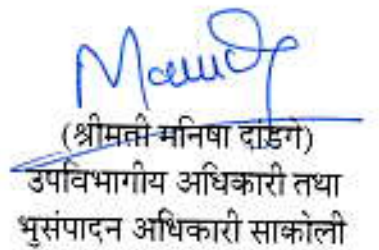 (श्रीमती मनिषा दांडगे)
उपविभागीय अधिकारी तथा
भुसंपादन अधिकारी साकोली